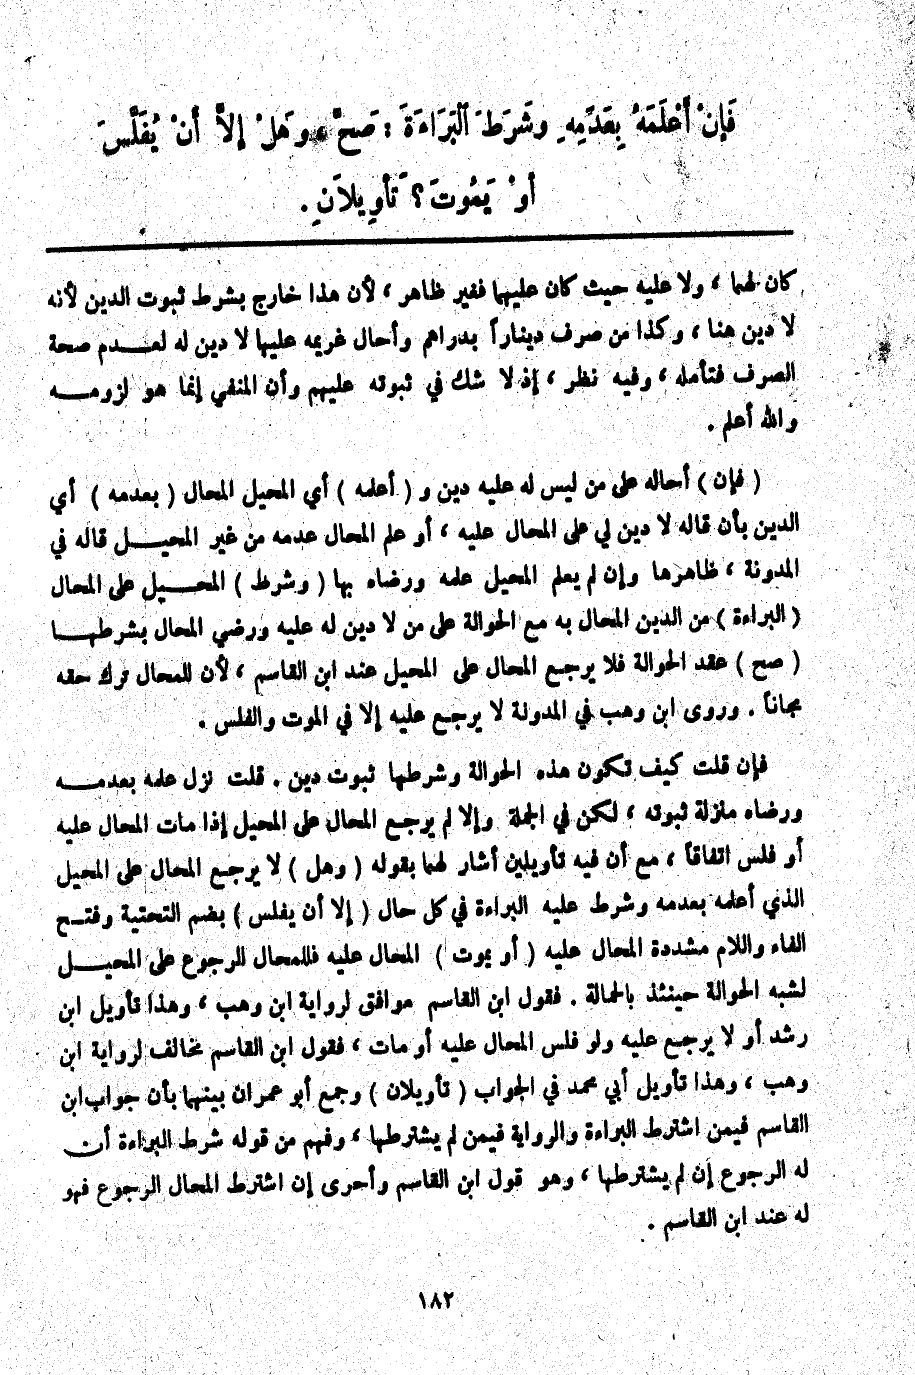 فَإِنْ أَعْلَمَهُ بِعَدَمِهِ وشَرَطَ الْبَرَاءَةَ : صَحَّ ، وَهَلْ إلاَّ أنْ يُفَلَّسَ
أوْ يَمُوتَ ؟ تَأوِيلاَنِ .
كان لهما ، ولا عليه حيث كان عليهما ففير ظاهر ، لأن هذا خارج بشرط ثبوت الدين لأنه
لا دين هنا ، وكذا من صرف ديناراً بدراهم وأحال غريمه عليها لا دين له لعدم صحة
الصرف فتأمله ، وفيه نظر ، إذ لا شك في ثبوته عليهم وأن المنفي إنما هو لزومه
والله أعلم .
( فإن ) أحاله على من ليس له عليه دين و ( أعلمه ) أي المحيل المحال ( بعدمه ) أي
الدين بأن قاله لا دين لي على المحال عليه ، أو علم المحال عدمه من غير المحيل قاله في
المدونة ، ظاهرها وإن لم يعلم المحيل علمه ورضاه بها ( وشرط ) المحيل على المحال
( البراءة ) من الدين المحال به مع الحوالة على من لا دين له عليه ورضي المحال بشرطها
( صح ) عقد الحوالة فلا يرجع المحال على المحيل عند ابن القاسم ، لأن للمحال ترك حقه
مجاناً . وروى ابن وهب في المدونة لا يرجع عليه إلا في الموت والفلس .
فإن قلت كيف تكون هذه الحوالة وشرطها ثبوت دين . قلت نزل علمه بعدمه
ورضاه منزلة ثبوته ، لكن في الجملة وإلا لم يرجع المحال على المحيل إذا مات المحال عليه
أو فلس اتفاقاً ، مع أن فيه تأويلين أشار لهما بقوله ( وهل ) لا يرجع المحال على المحيل
الذي أعلمه بعدمه وشرط عليه البراءة في كل حال ( إلا أن يفلس ) بضم التحتية وفتح
الفاء واللام مشددة المحال عليه ( أو يموت ) المحال عليه فللمحال للرجوع على المحيل
لشبه الحوالة حينئذ بالحمالة . فقول ابن القاسم موافق لرواية ابن وهب ، وهذا تأويل ابن
رشد أو لا يرجع عليه ولو فلس المحال عليه أو مات ، فقول ابن القاسم مخالف لرواية ابن
وهب ، وهذا تأويل أبي محمد في الجواب ( تأويلان ) وجمع أبو عمران بينهما بأن جواب ابن
القاسم فيمن اشترط البراءة والرواية فيمن لم يشترطها ، وفهم من قوله شرط البراءة أن
له الرجوع إن لم يشترطها ، وهو قول ابن القاسم وأحرى إن اشترط المحال الرجوع فهو
له عند ابن القاسم .
١٨٢